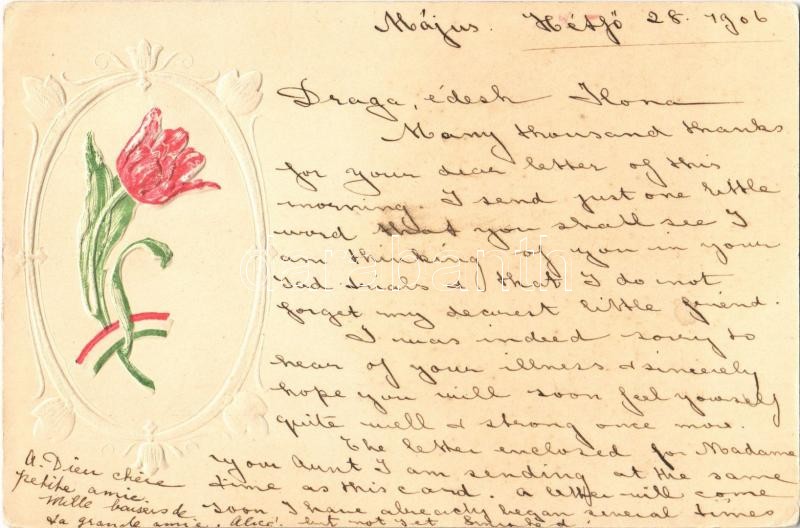 Május. Hétfő 28. 1906
Draga, édesh Ilona
Many thousand thanks
for your dear letter of this
morning. I send just one little
word that you shall see I
am thinking of you in your
sad trials & that I do not
forget my dearest little friend.
I was indeed sorry to
hear of your illness & sincerely
hope you will soon feel yourself
quite well & strong once more.
The letter enclosed for Madame
your Aunt I am sending at the same
time as this card. A letter will come
soon I have already began several times
but not yet
A. Dieu chère
petite amie.
Mille baisers de
ta grande amie. Alice!
darabanth